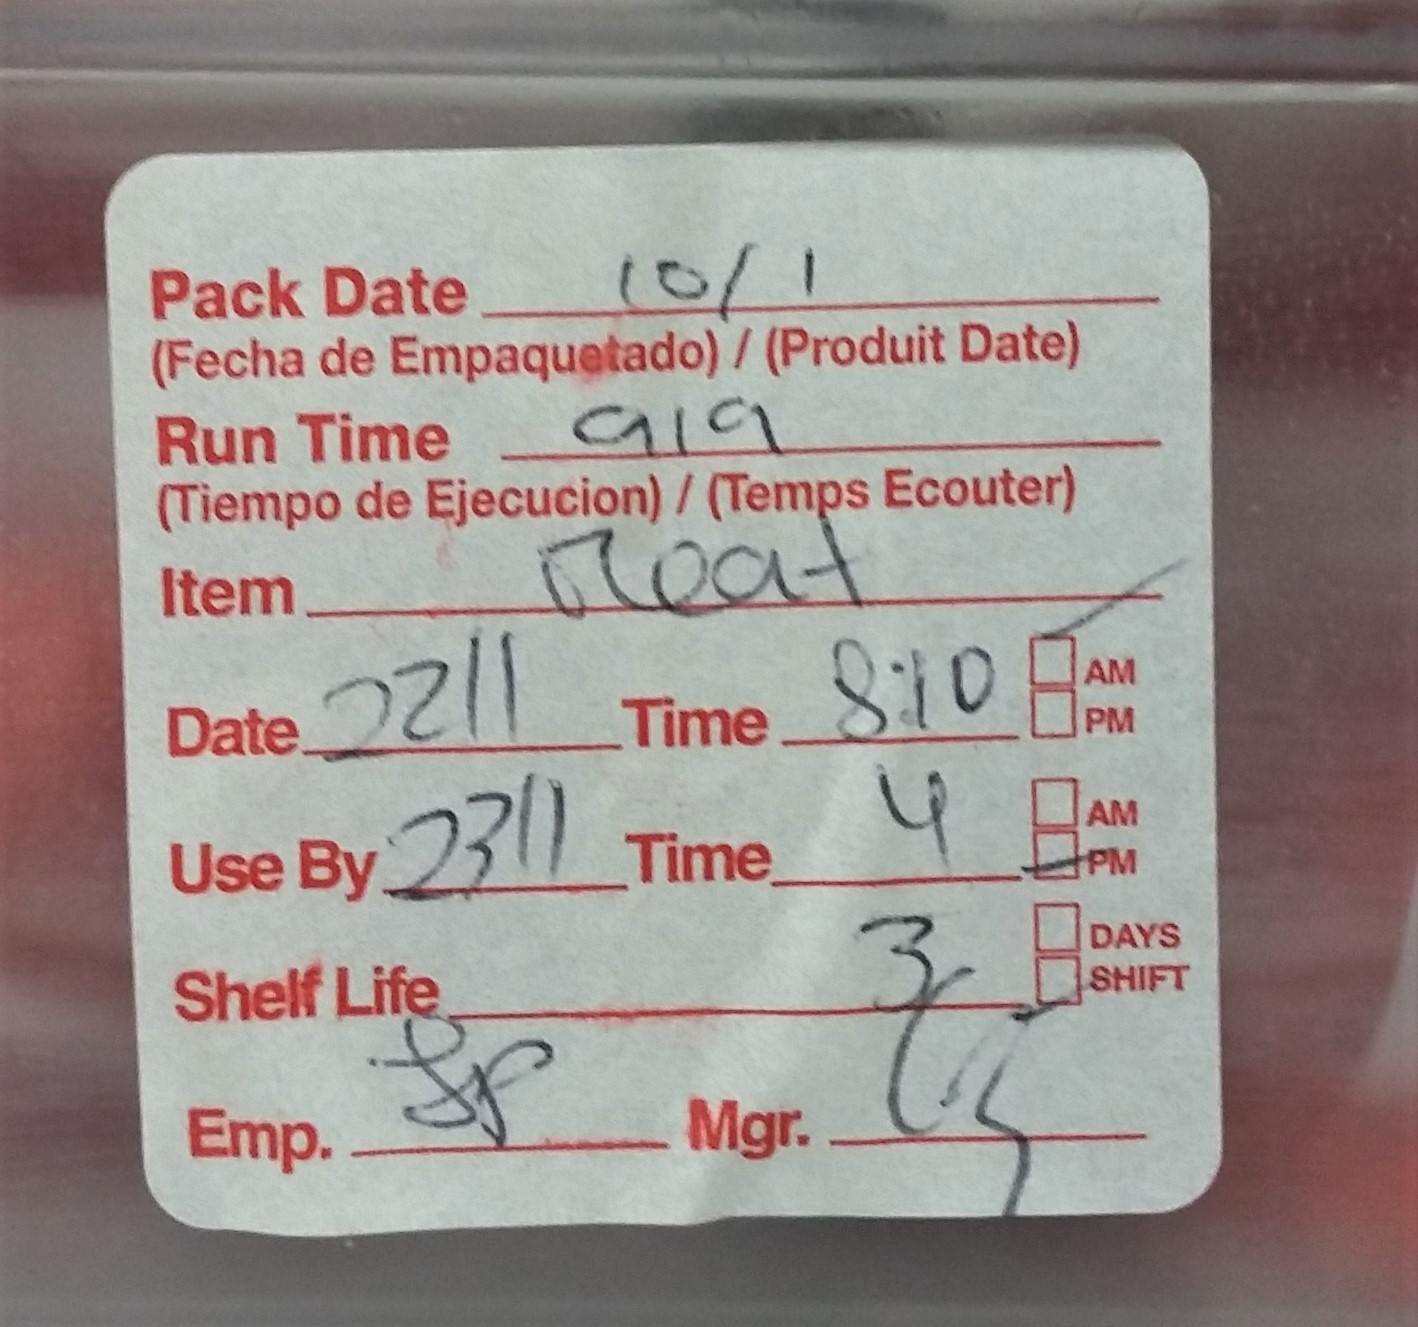 Pack Date 10/1
(Fecha de Empaquetado) / (Produit Date)
Run Time 919
(Tiempo de Ejecucion) / (Temps Ecouter)
Item Meat
Date 22/1 Time 8:10 AM
PM
Use By 23/1 Time 4 AM
PM
Shelf Life 3 DAYS
SHIFT
Emp. Mgr.